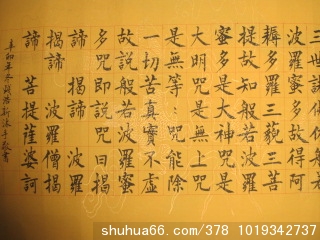 三世諸
波羅蜜多故得阿
耨多羅三藐三菩
提故知般若波羅
蜜多是大神咒是
大明咒是無上咒
是無等:咒能除
一切苦真實不虛
故說般若波羅蜜
多咒即說咒曰揭
諦 揭諦 波羅
揭諦 波羅僧揭
諦 菩提薩婆訶
辛卯年冬錢浩新沐手敬書
shuhua66.com/378 1019342737